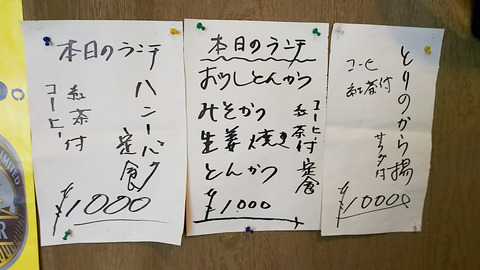 本日のランチ
ハンバーグ
定食
紅茶付
コーヒー
¥1000
本日のランチ
おろしとんかつ
みそかつ
生姜焼き
とんかつ
コーヒー
紅茶付
定食
¥1000
とりのから揚
サラダ付
コーヒ
紅茶付
¥1000
LIMITED
ER